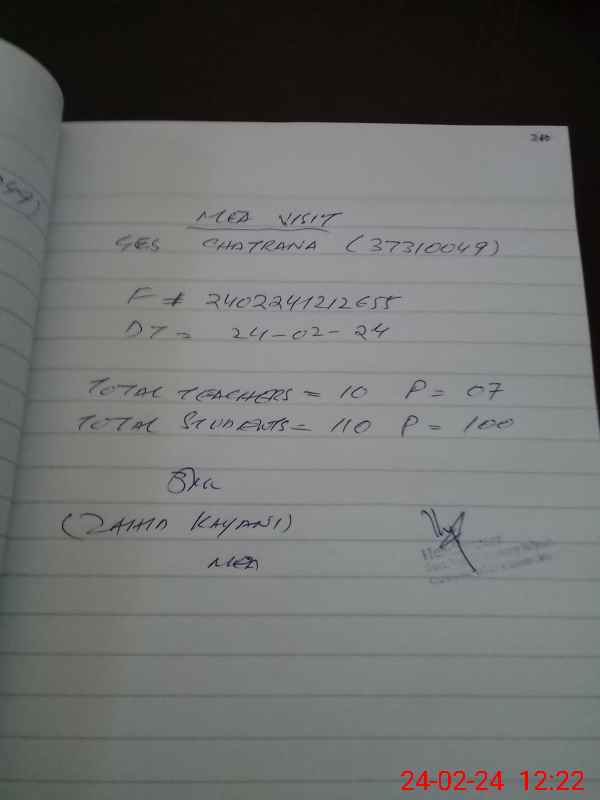 260
MEA VISIT
GES CHATRANA (37310049)
F # 2402241212655
DT = 24-02-24
TOTAL TEACHERS = 10 P = 07
TOTAL STUDENTS = 110 P = 100
(ZAHID KAYANI)
MEA
24-02-24 12:22